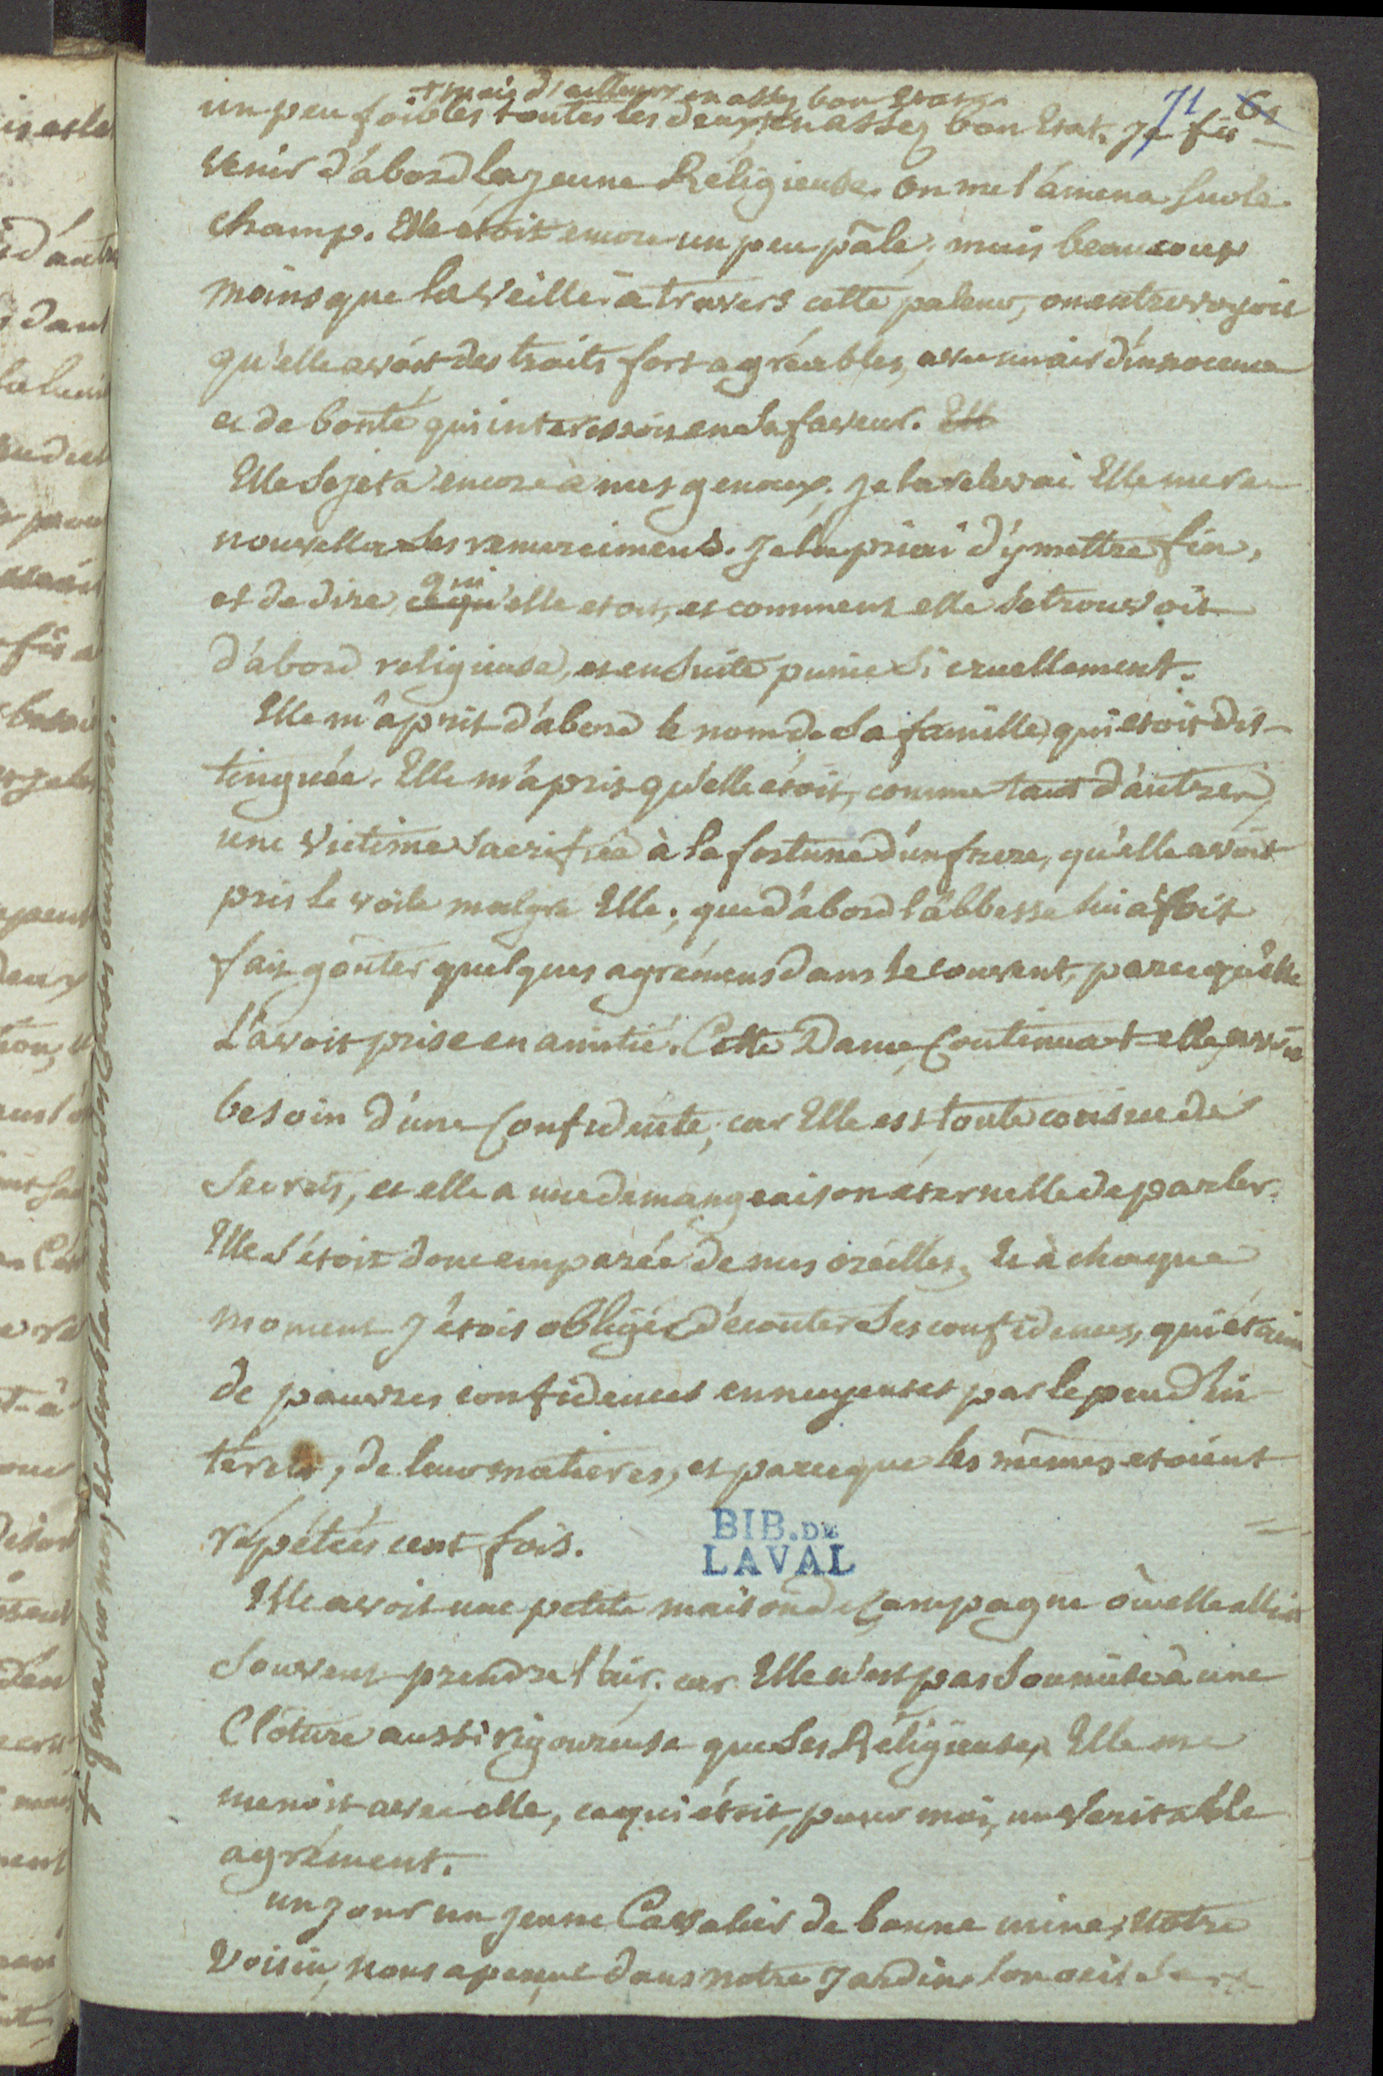 + mais d'ailleurs en assez bon état
71 61
un peu foibles toutes les deux, en assez bon Etat. Je fis
venir d'abord la jeune Réligieuse. On me l'amena sur le
champ. Elle étoit encore un peu pâle, mais beaucoup
moins que la veille à travers cette paleur, on entrevoyoit
qu'elle avoit des traits fort agréables, avec un air d'innocence
et de bonté qui interessoit en sa faveur. Ell
Elle se jeta encore à mes genoux. Je la relevai. Elle me re-
nouvella ses remerciemens. Je la priai d'y mettre fin,
qui
et de dire, ce qu'elle etoit, et comment elle se trouvoit
d'abord religieuse, et ensuite punie si cruellement.
Elle m'aprit d'abord le nom de sa famille, qui etoit dis-
tinguée. Elle m'aprit qu'elle étoit, comme tant d'autres,
une victime sacrifiée à la fortune d'un frere, qu'elle avoit
pris le voile malgré Elle; que d'abord l'abbesse lui avoit
fait goûter quelques agrémens dans le couvent, parce qu'elle
l'avoit prise en amitié. Cette Dame, continua-t-elle, avoit
besoin d'une Confidente, car Elle est toute cousue de
secrets, et elle a une demangeaison éternelle de parler.
Elle s'étoit donc emparée de mes oreilles, et à chaque
moment j'étois obligée d'écouter ses confidences, qui étaient
de pauvres confidences ennuyeuses par le peu d'in-
térêt, de leur matieres, et parceque les mêmes etoient
répétées cent fois.
BIB. DE
LAVAL
Elle avoit une petite maison de Campagne où elle alloit
souvent prendre l'air, car Elle n'est pas soumise à une
Clôture aussi rigoureuse que ses Réligieuses. Elle me
menoit avec elle, ce qui étoit, pour moi, un veritable
agrément.
un jour un jeune Cavalier de bonne mine, notre
Voisin, nous aperçut dans notre Jardin. Son oeil